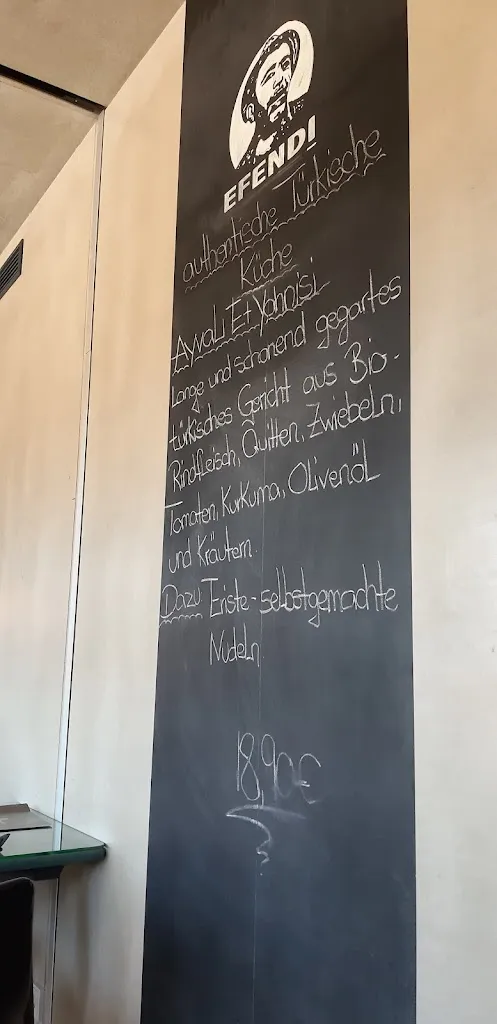 EFENDI
authentische Türkische
Küche
Ayvali Et Yahnisi
Lange und schonend gegartes
türkisches Gericht aus Bio-
Rindfleisch, Quitten, Zwiebeln,
Tomaten, Kurkuma, Olivenöl
und Kräutern.
Dazu: Eriste-selbstgemachte
Nudeln
18,90€